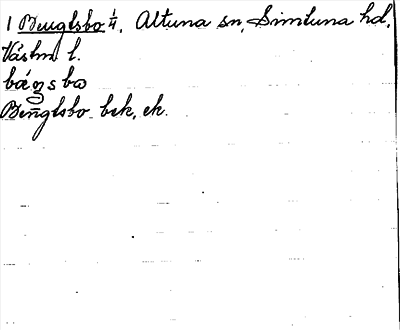 1 Bengtsbo 1/4, Altuna sn, Simtuna hd,
Västm l.
Bengtsbo bek, ek.